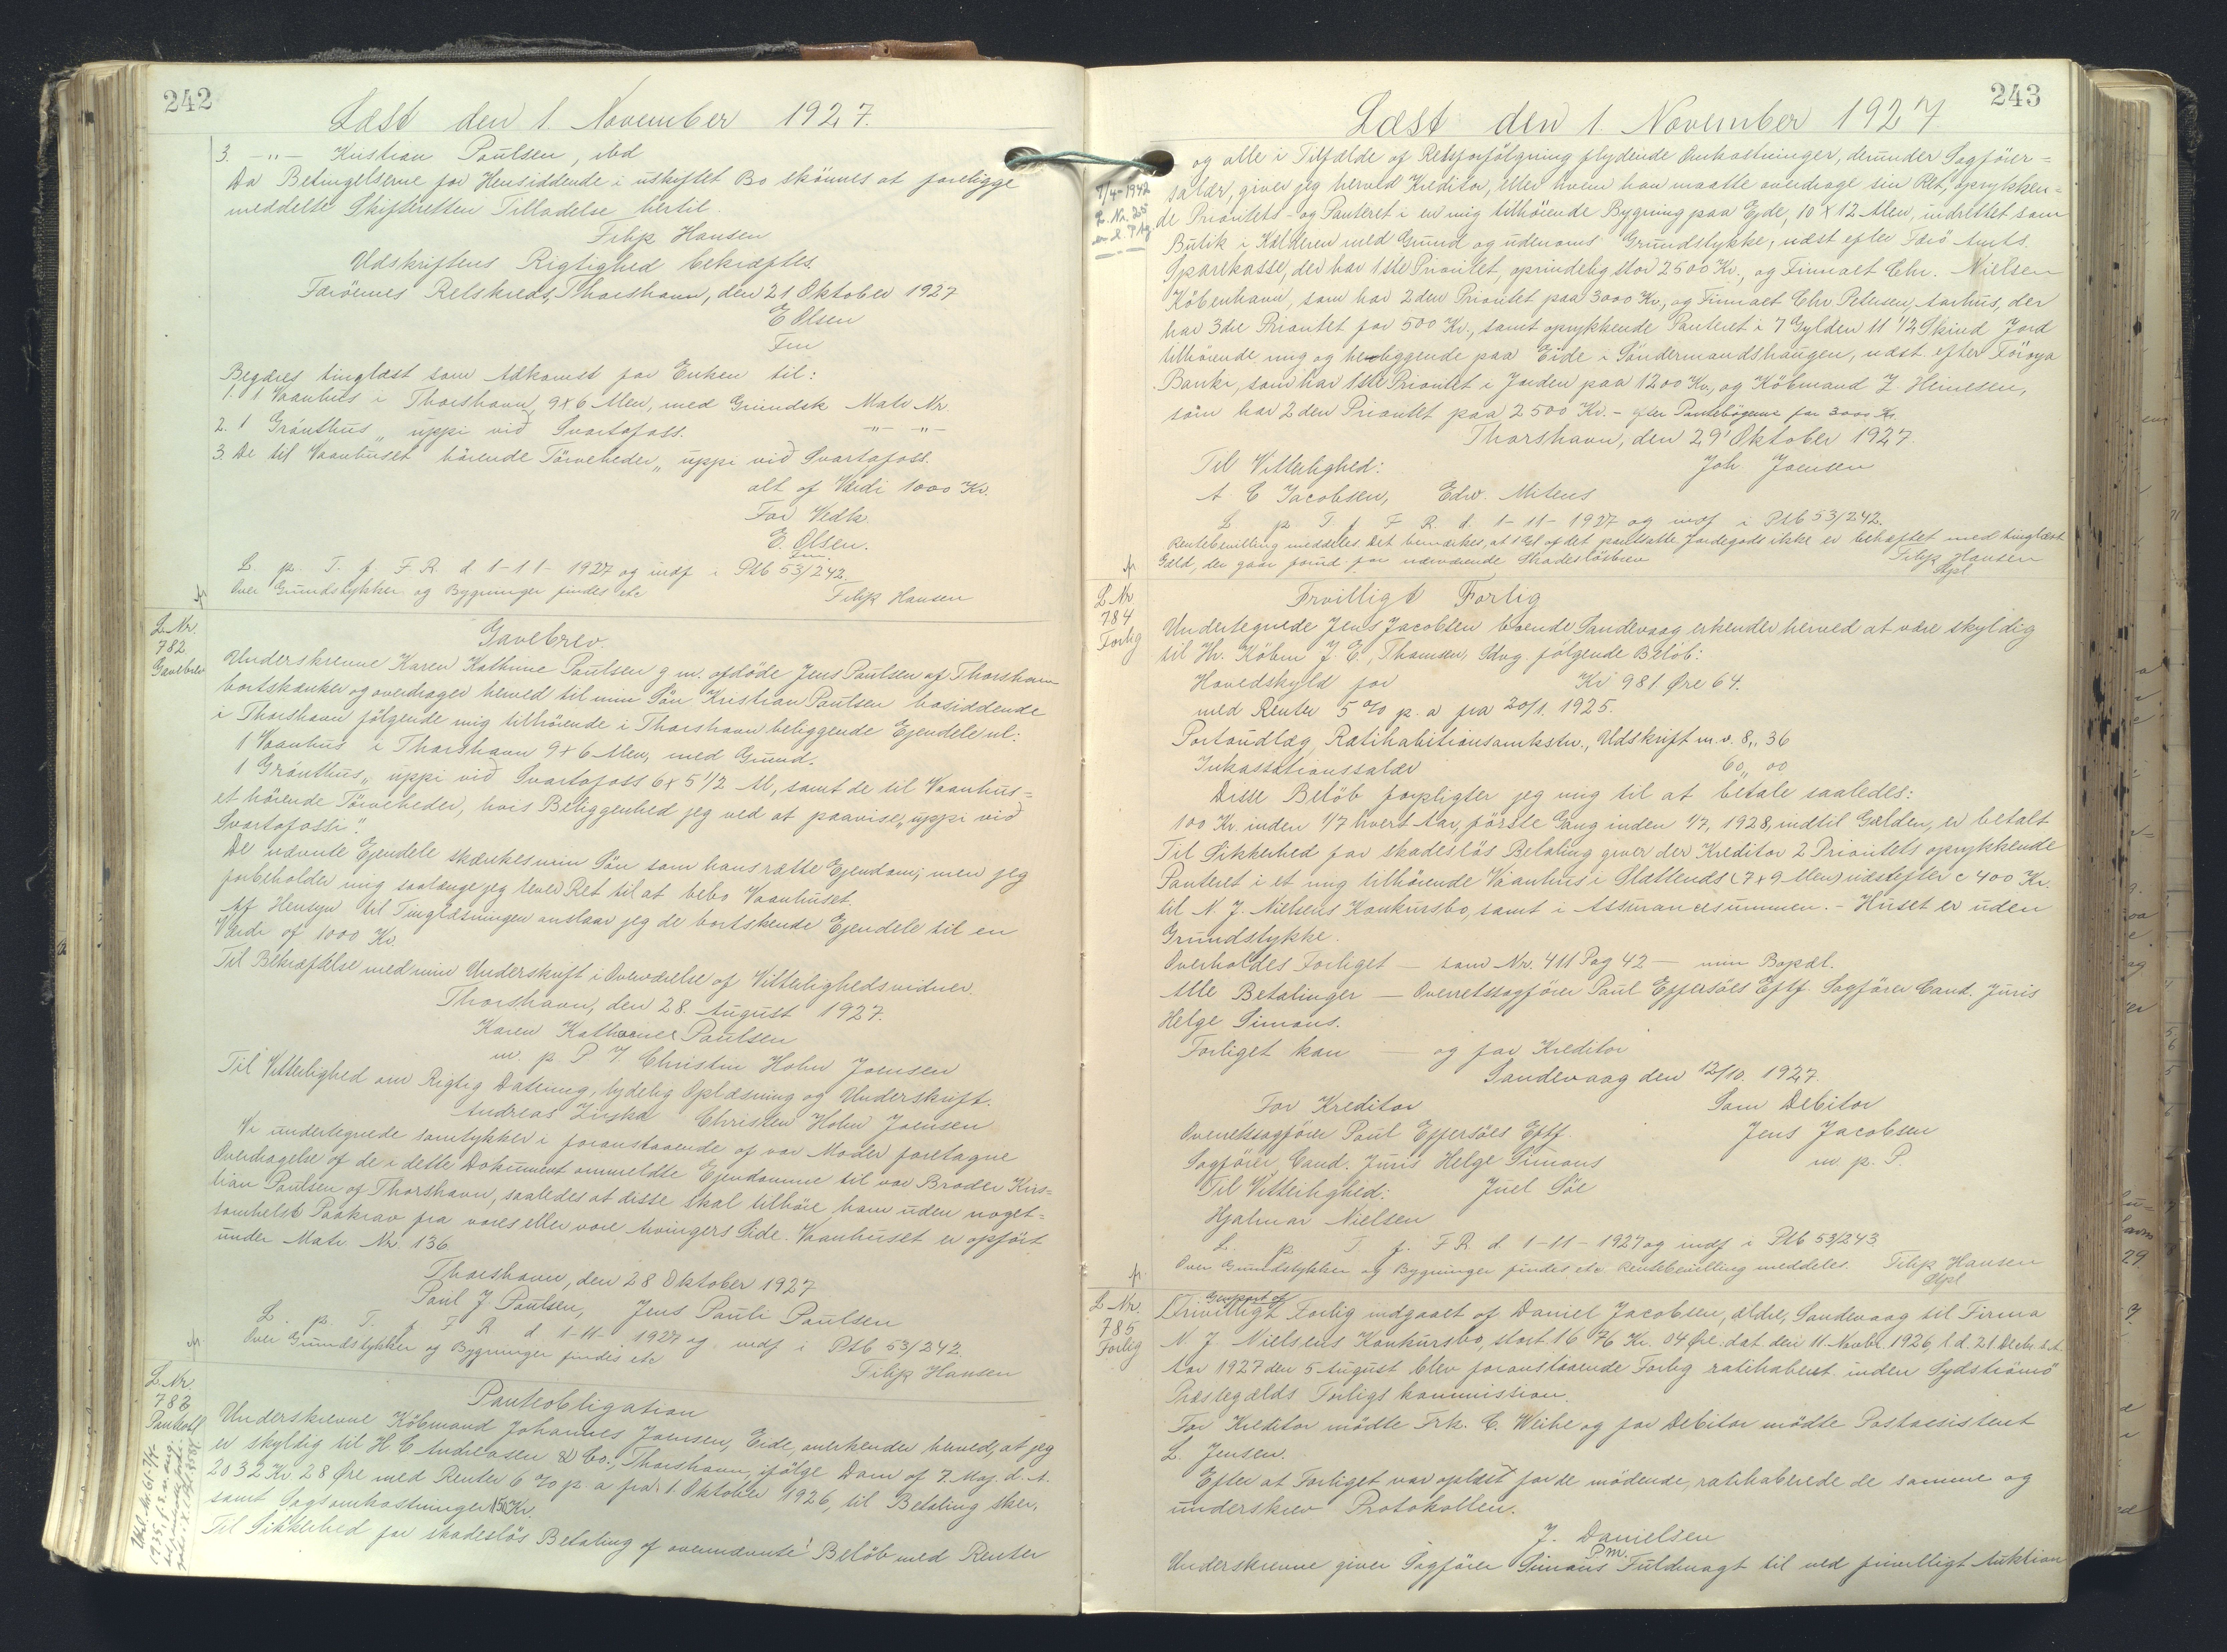 242
Læst den 1. November 1927.
3. -"- Kristian Poulsen, ibd
Da Betingelserne for Hensiddende i uskiftet Bo skönnes at foreligge
meddelte Skifteretten Tilladelse hertil.
Filip Hansen
Udskriftens Rigtighed bekræftes.
Færöernes Retskreds, Thorshavn, den 21 Oktober 1927
E Olsen
Fm
Begæres tinglæst som Adkomst for Enken til:
1. 1 Vaanhus i Thorshavn 9x6 Alen, med Grundstk Matr Nr.
2. 1 Gróuthus „ uppi við Svartafoss. -"- -"-
3. De til Vaanhuset hörende Törveheder „ uppi við Svartafoss.
alt af Værdi 1000 Kr.
For Vedk.
E. Olsen.
Fm.
L. p. T. f. F. R. d. 1-11-1927 og indf i Ptb 53/242.
Over Grundstykker og Bygninger findes etc
Filip Hansen
L. Nr.
782
Gavebrev
Gavebrev.
Underskrevne Karen Kathrine Poulsen g m. afdöde Jens Poulsen af Thorshavn
bortskænker og overdrager herved til min Sön Kristian Poulsen bosiddende
i Thorshavn fölgende mig tilhörende i Thorshavn beliggende Ejendele nl:
1 Vaanhus i Thorshavn 9x6 Alen, med Grund.
1 Gróuthus „ uppi við Svartafoss 6x5 1/2 Al, samt de til Vaanhus=
et hörende Törveheder, hvis Beliggenhed jeg ved at paavise „uppi við
Svartafossi".
De nævnte Ejendele skænkes min Sön som hans rette Ejendom; men jeg
forbeholder mig saalænge jeg lever Ret til at bebo Vaanhuset.
Af Hensyn til Tinglæsningen anslaar jeg de bortskenkede Ejendele til en
Værdi af 1000 Kr.
Til Bekræftelse med min Underskrift i Overværelse af Vitterlighedsvidner.
Thorshavn, den 28. August 1927.
Karen Katharine Poulsen
m. p. P J. Christen Holm Joensen
Til Vitterlighed om Rigtig Datering, tydelig Oplæsning og Underskrift.
Andreas Ziska Christen Holm Joensen
Vi undertegnede samtykker i foranstaaende af vor Moder foretagne
Overdragelse af de i dette Dokument ommeldte Ejendomme til vor Broder Kris=
tian Poulsen af Thorshavn, saaledes at disse skal tilhöre ham uden noget=
somhelst Paakrav fra vores eller vore Arvingers Side. Vaanhuset er opfört
under Matr. Nr. 136.
Thorshavn, den 28 Oktober 1927
Poul J Poulsen, Jens Pauli Poulsen
L. p. T. f F R d. 1-11-1927 og indf i Ptb 53/242.
Over Grundstykker og Bygninger findes etc
Filip Hansen
L. Nr.
783
Panteobl
Panteobligation
Underskrevne Köbmand Johannes Joensen, Eide, anerkender herved, at jeg
er skyldig til H C Andreasen & Co., Thorshavn, ifölge Dom af 7. Maj. d. A.
2032 Kr. 28 Øre med Renter 6 % p. a fra 1. Oktober 1926, til Betaling sker,
samt Sagsomkostninger 150 Kr.
Til Sikkerhed for skadeslös Betaling af ovennævnte Belöb med Renter
243
Læst den 1. November 1927.
og alle i Tilfælde af Retsforfölgning flydende Omkostninger, derunder Sagförer=
salær, giver jeg herved Kreditor, eller hvem han maatte overdrage sin Ret, oprykken=
de Prioritets- og Panteret i en mig tilhörende Bygning paa Ejde, 10 x 12 Alen, indrettet som
Butik i Kælderen med Grund og udenoms Grundstykke, næst efter Færö Amts
Sparekasse, der har 1ste Prioritet, oprindelig stor 2500 Kr., og Firmaet Chr. Nielsen
Köbenhavn, som har 2den Prioritet paa 3000 Kr., og Firmaet Chr Petersen Aarhus, der
har 3die Prioritet for 500 Kr., samt oprykkende Panteret i 7 Gylden 11 1/2 Skind Jord
tilhörende mig og beliggende paa Eide i Söndermandshaugen, næst efter Föroya
Banki, som har 1ste Prioritet i Jorden paa 1200 Kr., og Köbmand J. Heinesen,
som har 2den Prioritet paa 2500 Kr. - efter Pantebögerne for 3000 Kr.
Thorshavn, den 29' Oktober 1927.
Til Vitterlighed: Joh Joensen
A. C Jacobsen, Edw. Mitens
L p T f F R. d. 1-11-1927 og indf i Ptb 53/242.
Rentebevilling meddeles. Det bemærkes, at 1 Gl af det pantsatte Jordegods ikke er behæftet med tinglæst
Gæld, der gaar forud for nærværende Skadeslösbrev
Filip Hansen
Spl
7/4-1942
L. Nr. 25
L Nr
784
Forlig
Frivilligt Forlig
Undertegnede Jens Jacobsen boende Sandevaag erkender herved at være skyldig
til Hr. Köbm J. C. Thomsen, Sdvg. fölgende Belöb:
Hovedskyld for Kr 981 Øre 64.
med Renter 5 % p. a fra 20/1. 1925.
Portoudlæg, Ratihabitionsomkstn., Udskrift m. v. 8„ 36
Inkassationssalær 60„ 00
Disse Belöb forpligter jeg mig til at betale saaledes:
100 Kr. inden 1/7 hvert Aar, förste Gang inden 1/7, 1928, indtil Gælden, er betalt
Til Sikkerhed for skadeslös Betaling giver der Kreditor 2 Prioritets oprykkende
Panteret i et mig tilhörende Vaanhus i Slættends (7x9 Alen) næstefter c 400 Kr.
til N. J. Nielsens Konkursbo, samt i Assurancesummen. - Huset er uden
Grundstykke.
Overholdes Forliget - som Nr. 411 Pag 42 - min Bopæl.
Alle Betalinger - Overretssagförer Poul Effersöes Eftf. Sagförer Cand. Juris
Helge Simons.
Forliget kan - og for Kreditor
Sandevaag den 12/10. 1927.
For Kreditor Som Debitor
Overretssagförer Poul Effersöes Eftf Jens Jacobsen
Sagförer, Cand. Juris Helge Simons m p. P.
Til Vitterlighed: Juel Söe
Hjalmar Nielsen
L. p. T f. F R. d. 1-11-1927 og indf i Ptb 53/243
Over Grundstykker og Bygninger findes etc Rentebevilling meddeles. Filip Hansen
Spl
L Nr.
785
Forlig
Genpart af
Frivilligt Forlig indgaaet af Daniel Jacobsen, ældre, Sandevaag til Firma
N. J. Nielsens Konkursbo, stort 1676 Kr. 04 Øre. dat den 11. Novbr. 1926, l. d. 21 Decbr. s. A.
Aar 1927 den 5 August blev foranstaaende Forlig ratihaberet inden Sydströmö
Præstegælds Forligskommission.
For Kreditor mödte Frk. C. Weihe og for Debitor mödte Postassistent
L. Jensen.
Efter at Forliget var oplæst for de mödende, ratihaberede de samme og
underskrev Protokollen.
J. Danielsen
P. m.
Underskrevne giver Sagförer Simons Fuldmagt til ved frivilligt Auktion